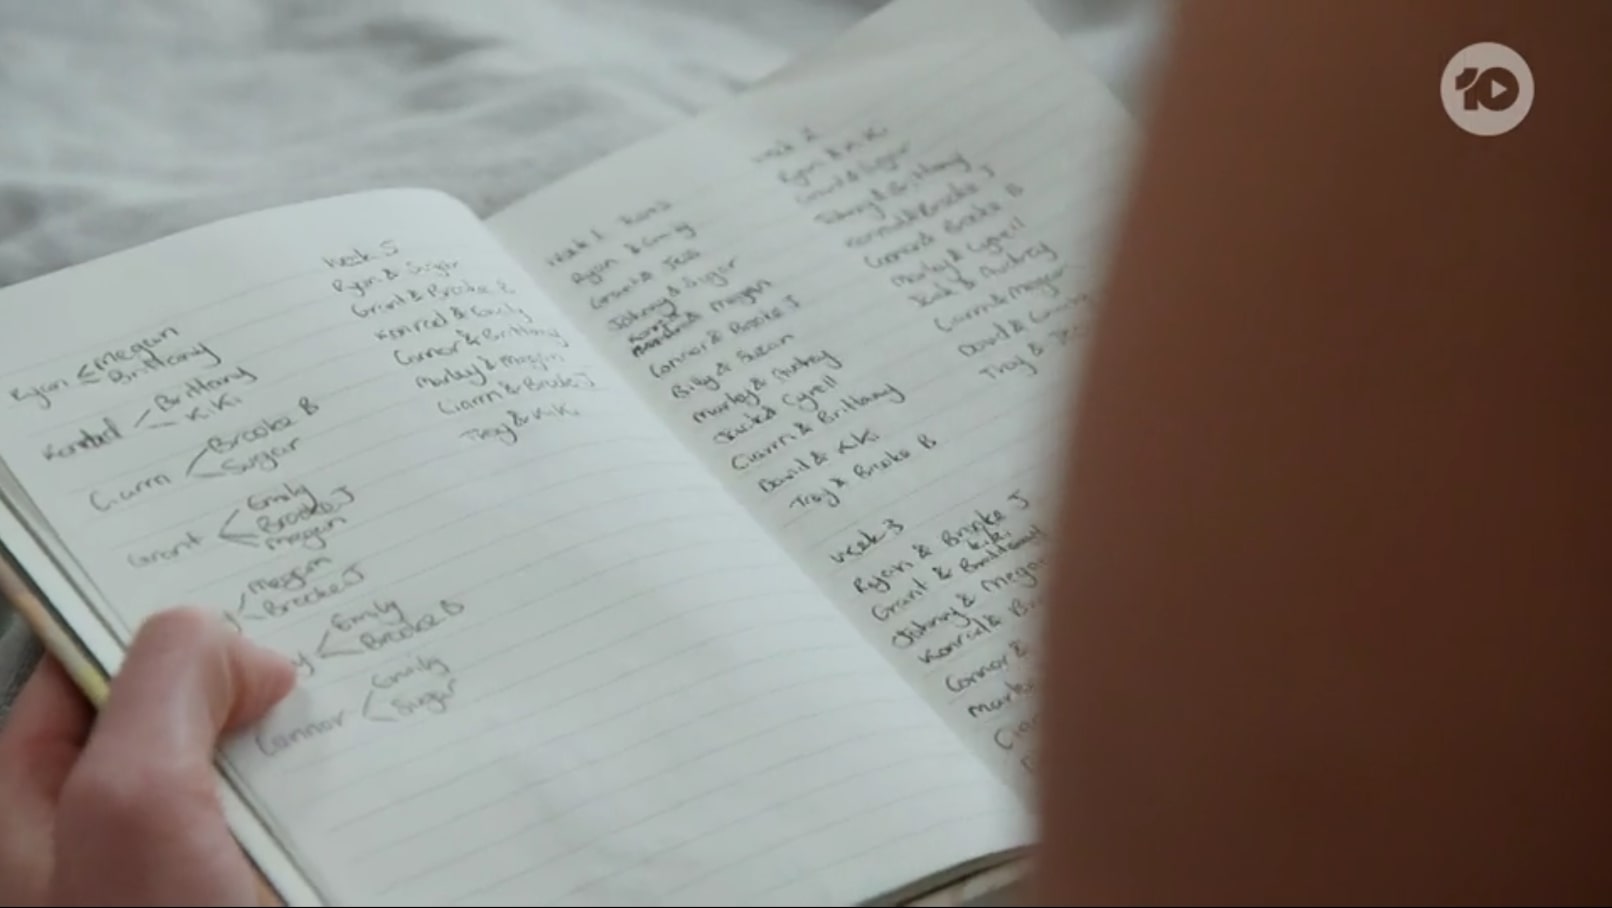 Ryan < Megan
Brittany
Konrad < Brittany
KiKi
Ciarran < Brooke B
Sugar
Grant < Emily
Brooke J
Megan
Megan
Brooke J
y < Emily
Brooke B
Connor < Emily
Sugar
week 5
Ryan & Sugar
Grant & Brooke B
Konrad & Emily
Connor & Brittany
Marley & Megan
Ciarran & Brooke J
Troy & KiKi
week 1
Ryan & Emily
Grant & Jess
Johnny & Sugar
Konrad & Megan
Connor & Brooke J
Billy & Susan
Marley & Audrey
Jack & Cyrell
Ciarran & Brittany
David & KiKi
Troy & Brooke B
week 2
Ryan & KiKi
Grant & Sugar
Johnny & Brittany
Konrad & Brooke J
Connor & Brooke B
Marley & Cyrell
Jack & Audrey
Ciarran & Megan
David & Emily
Troy & Jess
week 3
Ryan & Brooke J
KiKi
Grant & Brittany
Johnny & Megan
Konrad & Br
Connor &
Marley
10